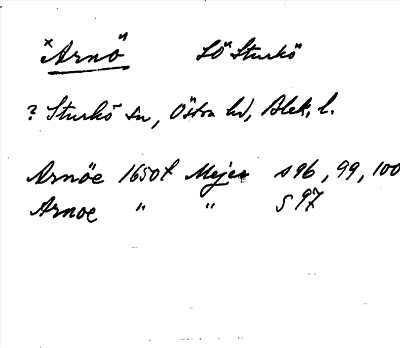 ×Arnö" SÖ Sturkö
? Sturkö sn, Östra hd, Blek. l.
Arnöe 1650t Mejer s 96, 99, 100
Arnoe " " s 97